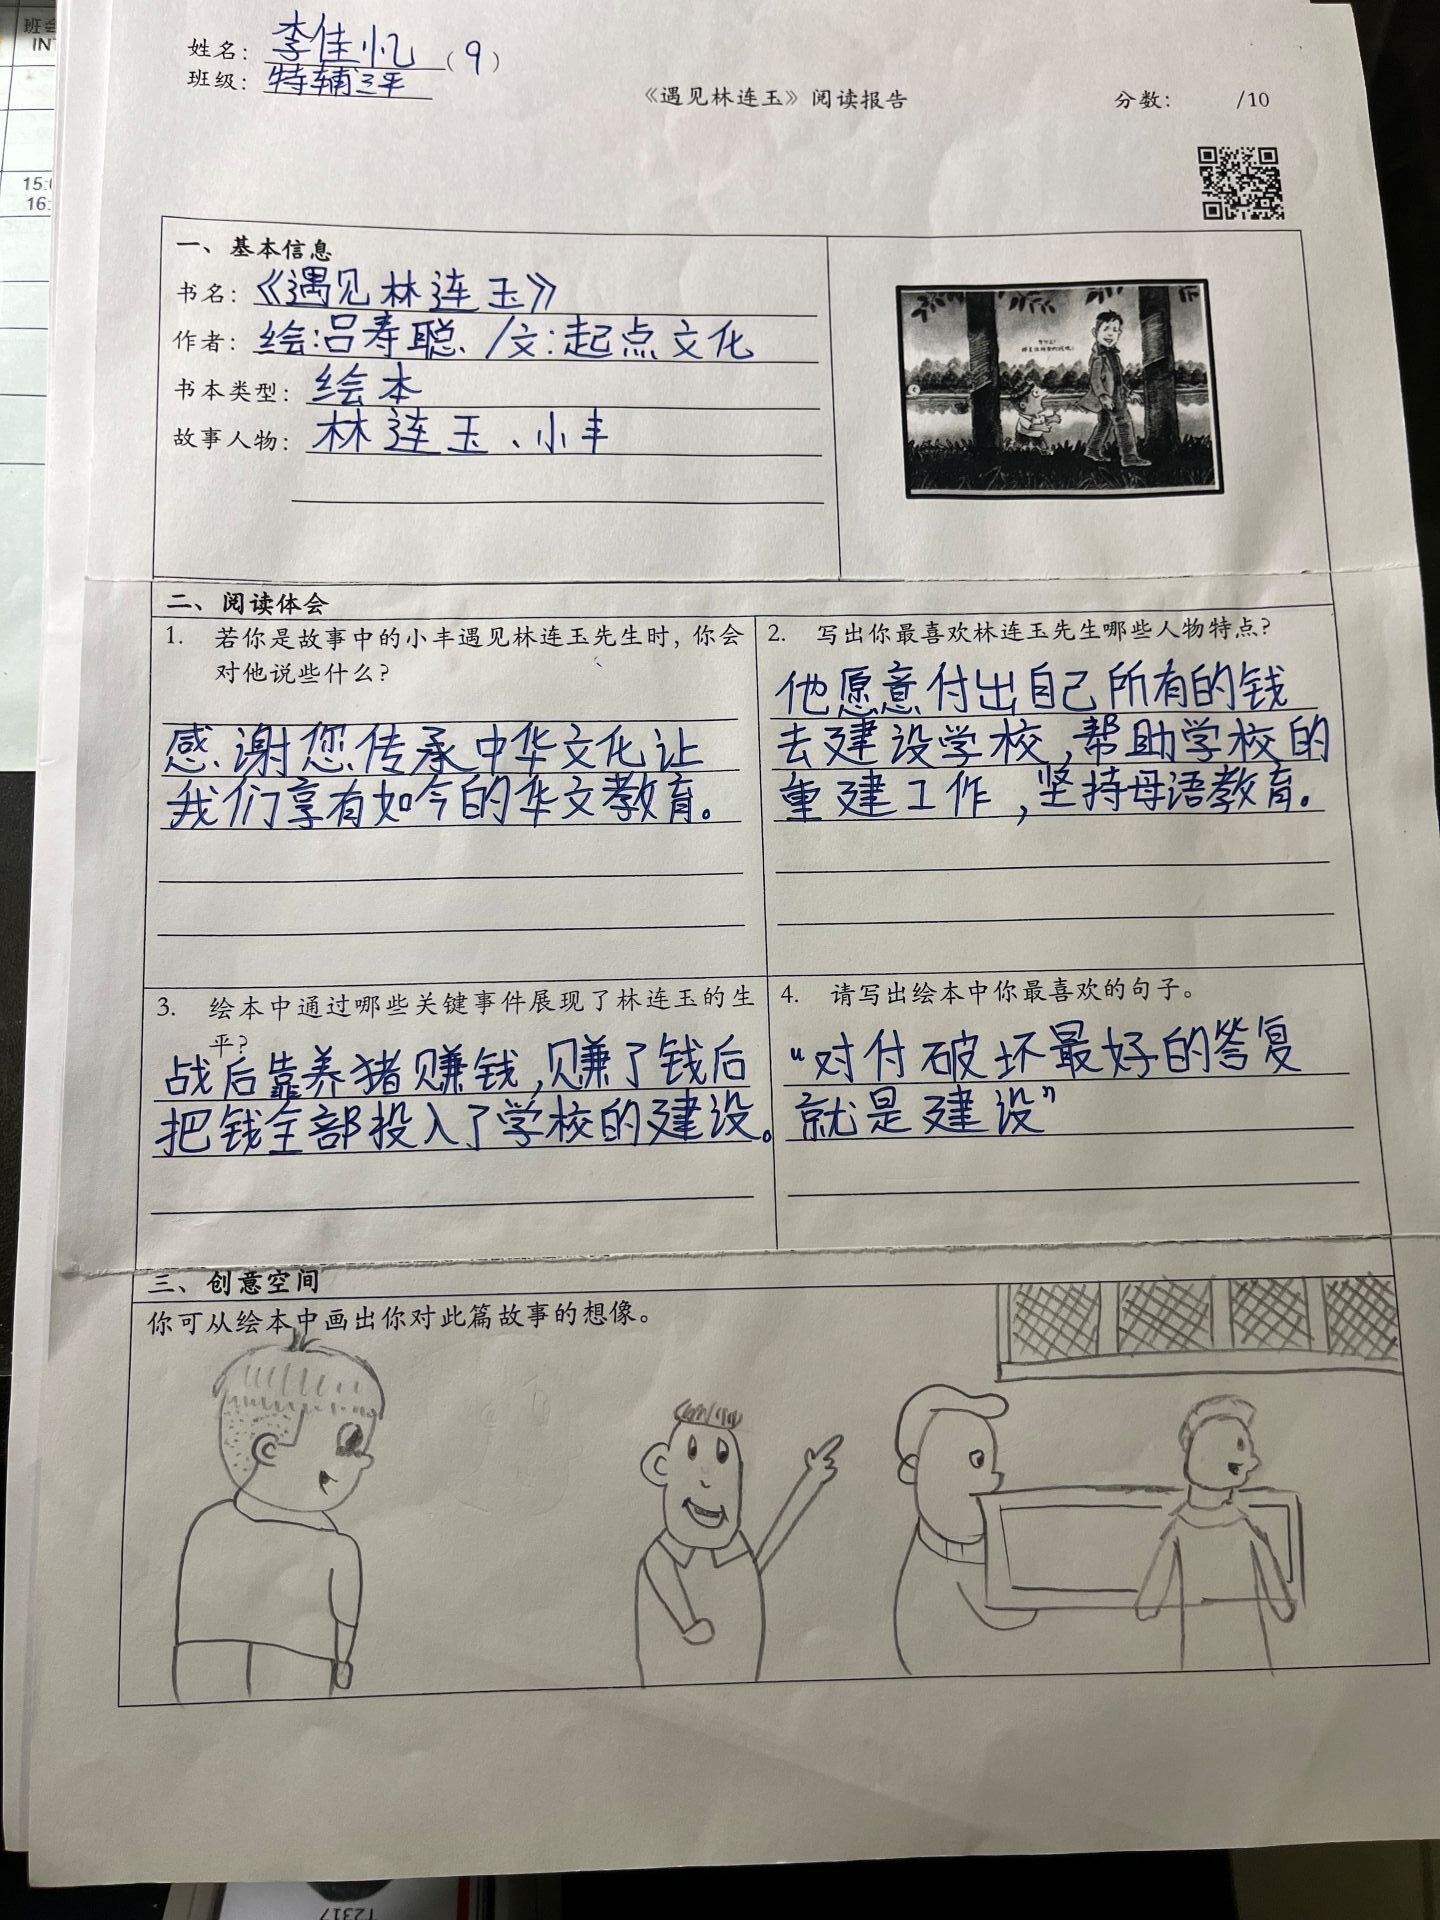 班会
INT
15:0
16:
姓名：李佳忆（9）
班级：特辅三平
《遇见林连玉》阅读报告
分数： /10
一、基本信息
书名：《遇见林连玉》
作者：绘:吕寿聪 /文:起点文化
书本类型：绘本
故事人物：林连玉、小丰
二、阅读体会
1. 若你是故事中的小丰遇见林连玉先生时，你会
对他说些什么？
感谢您传承中华文化让
我们享有如今的华文教育。
2. 写出你最喜欢林连玉先生哪些人物特点？
他愿意付出自己所有的钱
去建设学校,帮助学校的
重建工作，坚持母语教育。
3. 绘本中通过哪些关键事件展现了林连玉的生
平？
战后靠养猪赚钱,赚了钱后
把钱全部投入了学校的建设。
4. 请写出绘本中你最喜欢的句子。
“对付破坏最好的答复
就是建设”
三、创意空间
你可从绘本中画出你对此篇故事的想像。
T2317